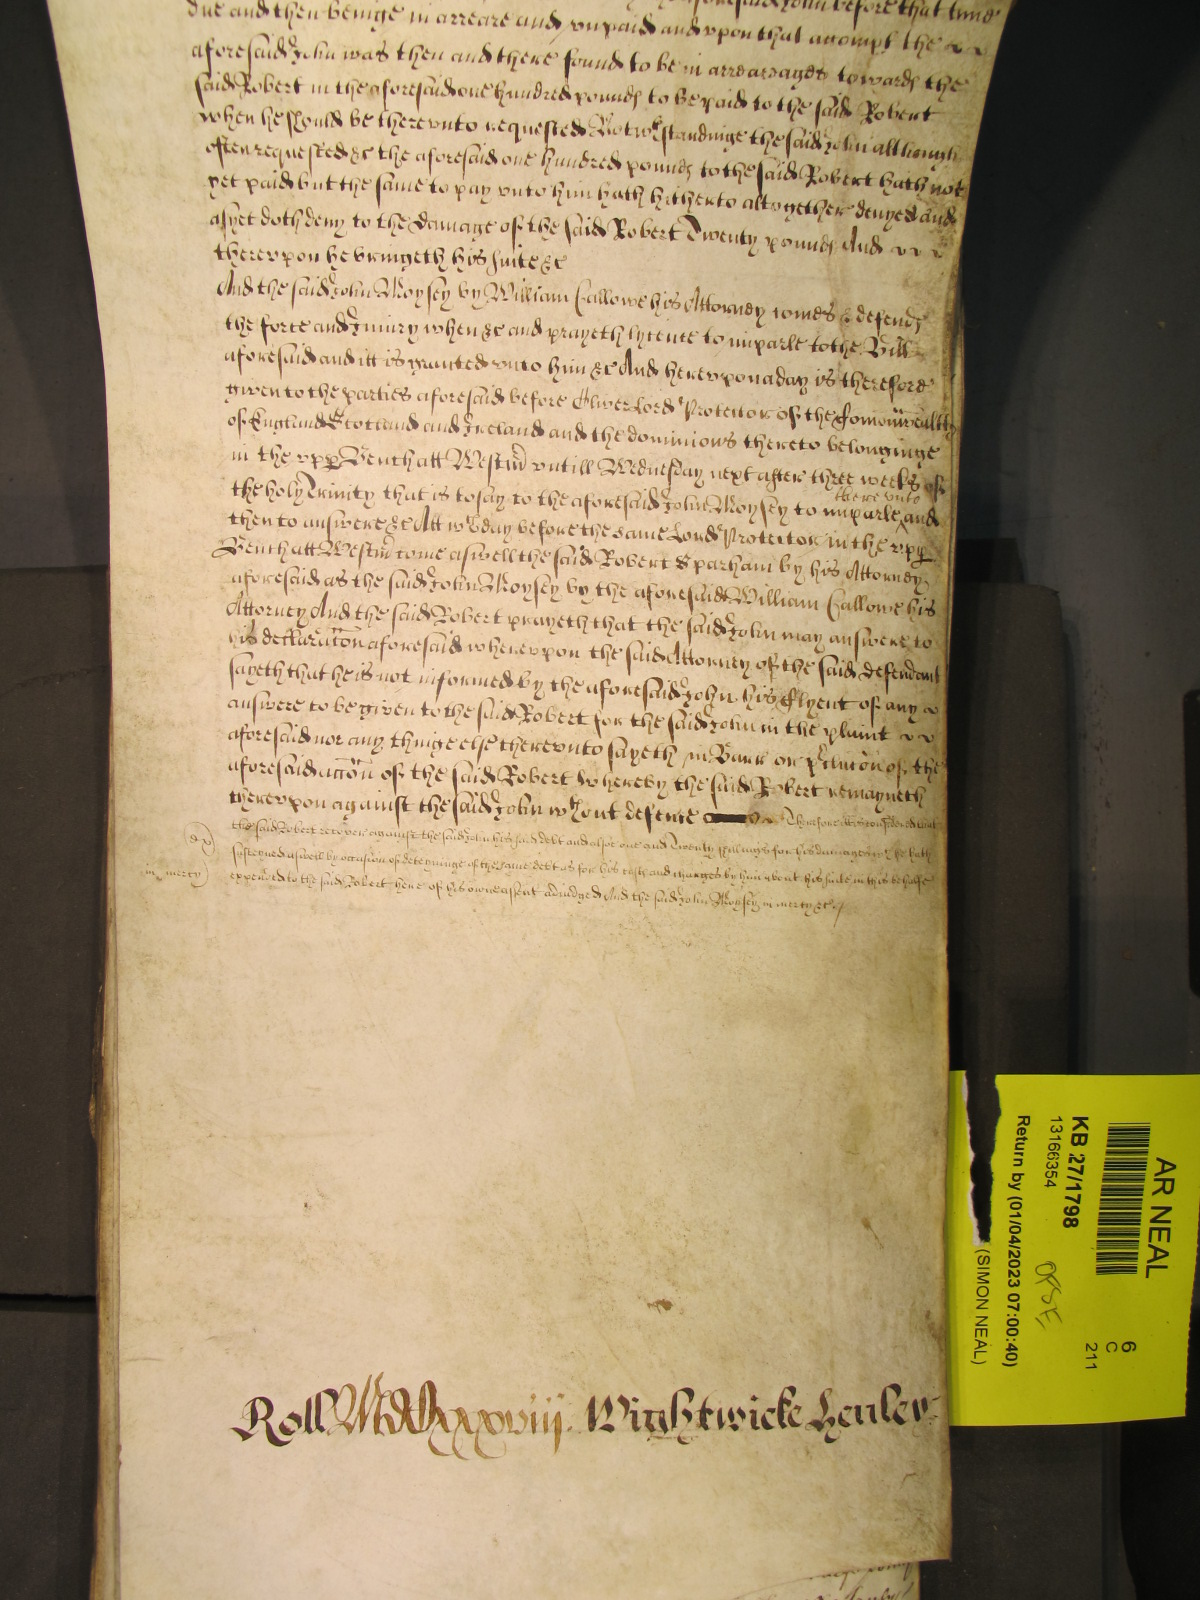 aforesaid John before that time
due and then beinge in arreare and unpaid and upon that accompt the
aforesaid John was then and there found to be in arrearages towards the
said Robert in the aforesaid one hundred pounds to be paid to the said Robert
when he should be thereunto requested Notwthstandinge the said John although
often requested &c the aforesaid one hundred pounds to the said Robert hath not
yet paid but the same to pay unto him hath hitherto altogether denyed and
as yet doth deny to the damage of the said Robert Twenty pounds And
thereupon he bringeth his suite &c
And the said John Moysey by William Callowe his Attorney comes & defends
the force and Iniury when &c and prayeth lycence to imparle to the Bill
aforesaid and itt is granted unto him &c And hereupon a day is therefore
given to the parties aforesaid before Oliver Lord Protector of the Comonwealth
of England Scotland and Ireland and the dominions thereto belonginge
in the upp Bench att Westm untill Wednesday next after three weeks of
the holy Trinity that is to say to the aforesaid John Moysey to imparle thereunto and
then to answere &c Att wch day before the same Lord Protector in the upp
Bench att Westm come aswell the said Robert Sparham by his Attorney
aforesaid as the said John Moysey by the aforesaid William Callowe his
Attorney And the said Robert prayeth that the said John may answere to
his declaracon aforesaid whereupon the said Attorney of the said defendant
sayeth that he is not informed by the aforesaid John his Clyent of any
answere to be given to the said Robert for the said John in the plaint
aforesaid nor any thinge else thereunto sayeth in Barr or pclucon of the
aforesaid accon of the said Robert whereby the said Robert remayneth
thereupon against the said John wthout defence Therefore itt is considered that
the said Robert recover against the said John his said debt and alsoe one and Twenty shillings for his damages wch he hath
susteyned aswell by occasion of deteyninge of the same debt as for his costs and charges by him about his suite in this behalfe
in mercy
expended to the said Robert here of his owne assent adiudged And the said John Moysey in mercy &c
Roll MDCxxxviij. Wightwicke Henley
AR NEAL
6
C
211
KB 27/1798
13166354
Return by (01/04/2023 07:00:40)
(SIMON NEAL)